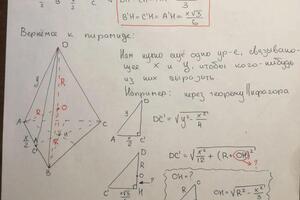 B'H = C'H = A'H = x√3/6
Вернёмся к пирамиде:
Нам нужно ещё одно ур-е, связываю-
щее x и y, чтобы кого-нибудь
из них выразить.
Например: через теорему Пифагора
DC' = √(y² - x²/4)
DC' = √(x²/12 + (R+OH)²)
?
OH = ?
OH = √(R² - x²/3)
D
y
R
O
A
C
B
H
x/2
3
A
x/2
C'
D
R
O
H
C'
x√3/6
?
R
O